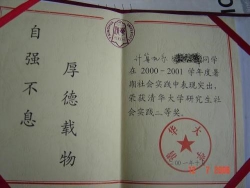 自强不息
厚德载物
计算机系 同学
在2000-2001学年度暑
期社会实践中表现突出,
荣获清华大学研究生社
会实践二等奖。